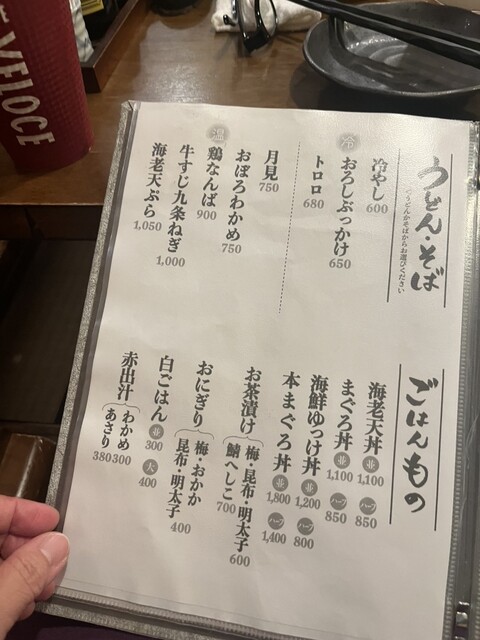 うどん・そば
うどんかそばからお選びください
冷
冷やし 600
おろしぶっかけ 650
トロロ 680
温
月見 750
おぼろわかめ 750
鶏なんば 900
牛すじ九条ねぎ 1,000
海老天ぷら 1,050
ごはんもの
海老天丼 並 1,100 ハーフ 850
まぐろ丼 並 1,100 ハーフ 850
海鮮ゆっけ丼 並 1,200 ハーフ 800
本まぐろ丼 並 1,800 ハーフ 1,400
お茶漬け 梅・昆布・明太子 600
鯖へしこ 700
おにぎり 梅・おかか
昆布・明太子 400
白ごはん 並 300 大 400
赤出汁 わかめ 300
あさり 380
VELOCE